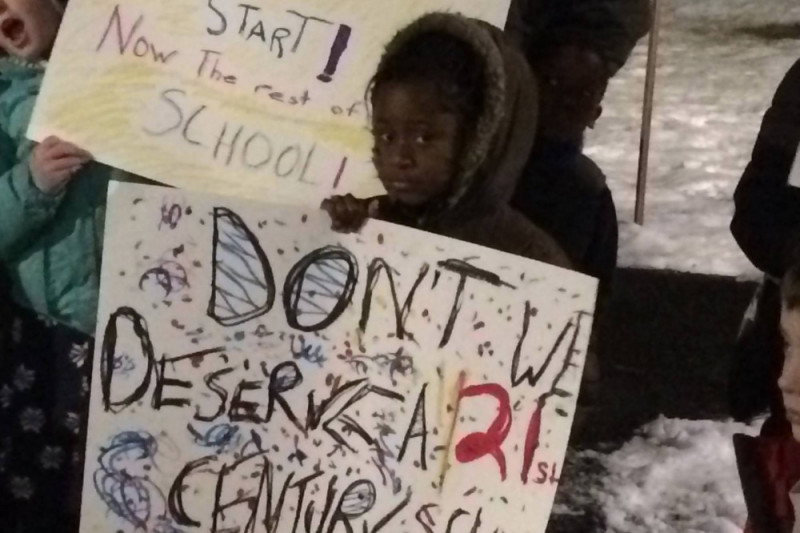 START!
Now The rest of
SCHOOL!
DON'T WE
DESERVE A 21st
CENTURY